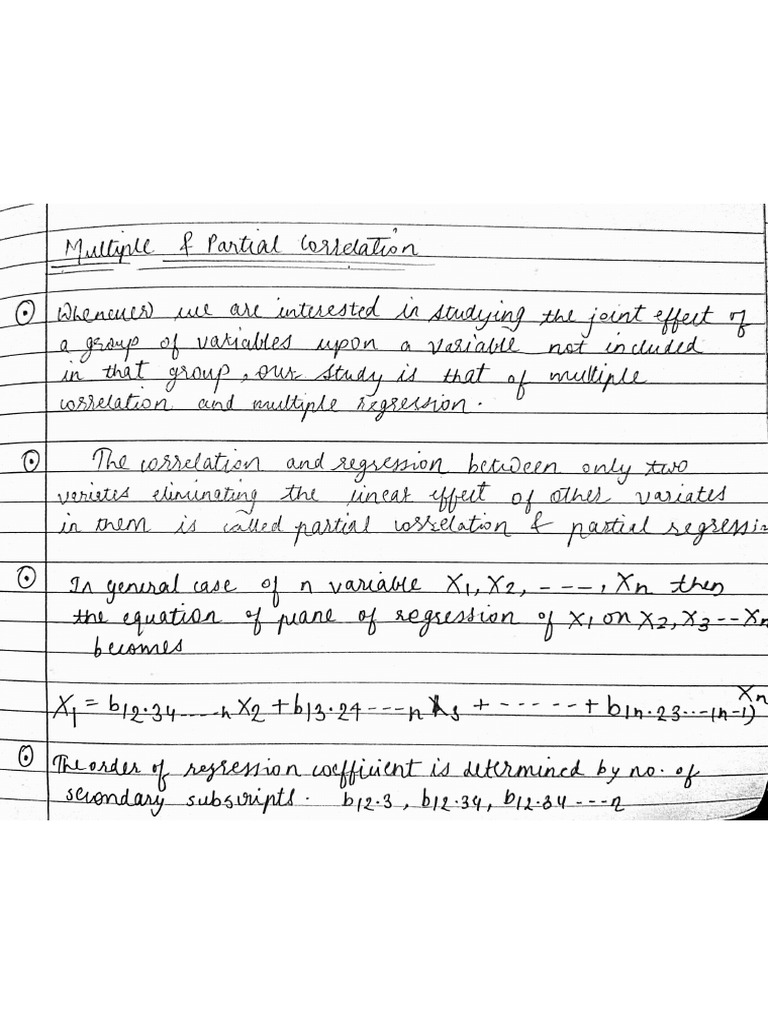 Multiple & Partial Correlation
Whenever we are interested in studying the joint effect of
a group of variables upon a variable not included
in that group, our study is that of multiple
correlation and multiple regression.
The correlation and regression between only two
varietes eliminating the linear effect of other variates
in them is called partial correlation & partial regressin
In general case of n variable X₁, X₂, ----, Xn then
the equation of plane of regression of X₁ on X₂, X₃ -- Xn
becomes
X₁ = b₁₂.₃₄.....n X₂ + b₁₃.₂₄ ----n X₃ + ----- + b₁n.₂₃...-(n-1) Xn
The order of regression coefficient is determined by no. of
secondary subscripts. b₁₂.₃, b₁₂.₃₄, b₁₂.₃₄ ---n